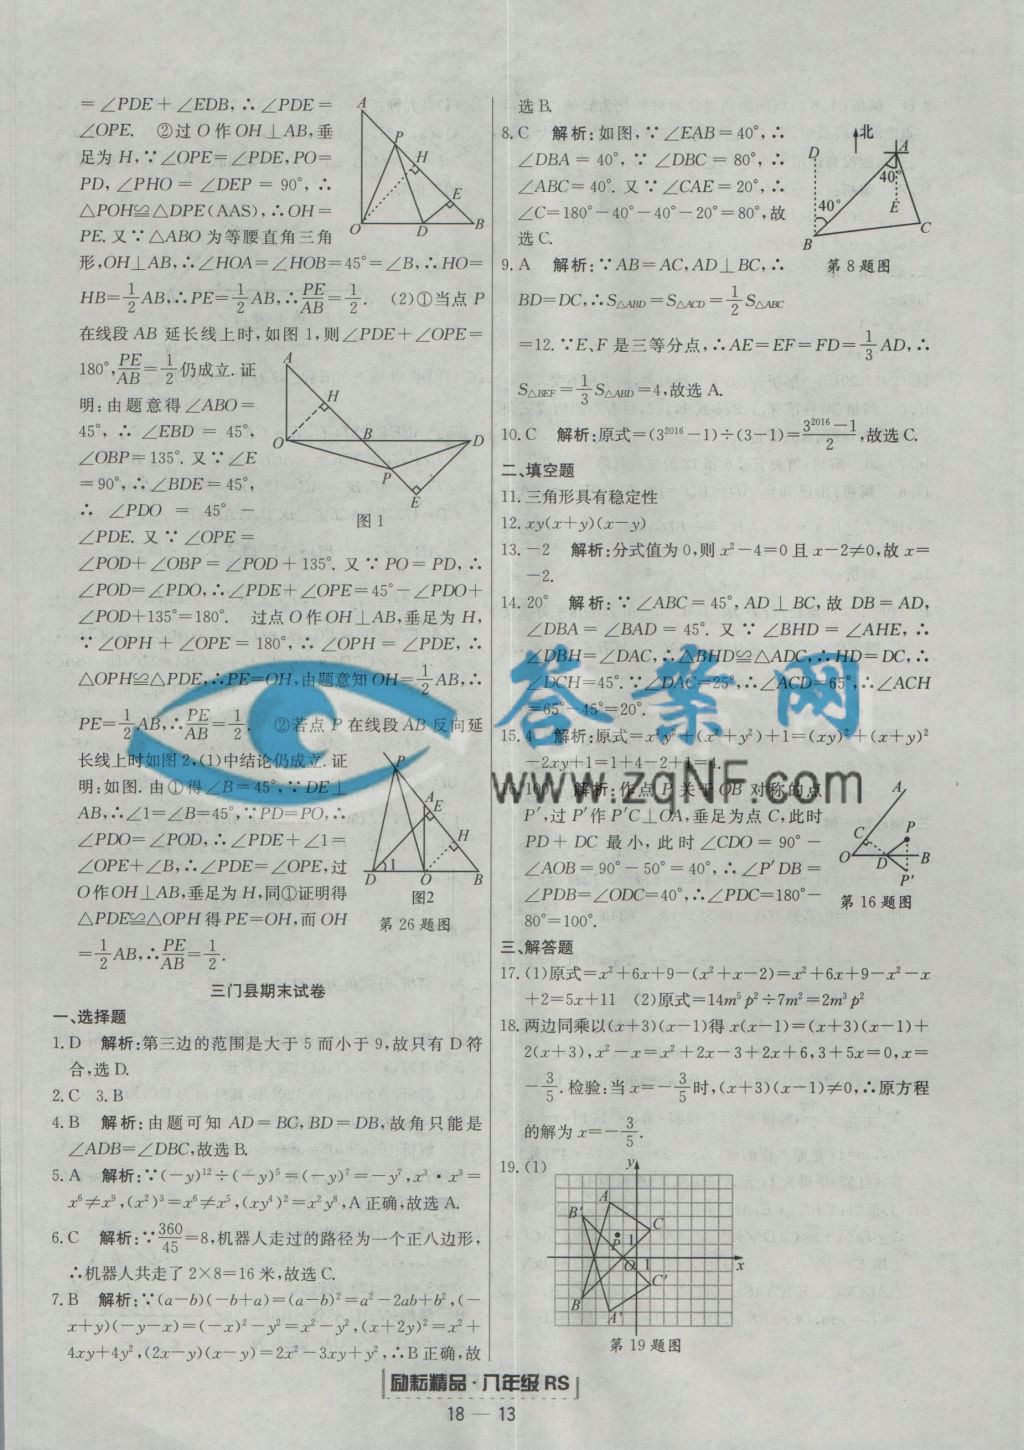 =∠PDE+∠EDB,∴∠PDE=
∠OPE. ②过O作OH⊥AB,垂
足为H,∵∠OPE=∠PDE,PO=
PD,∠PHO=∠DEP=90°,∴
△POH≌△DPE(AAS),∴OH=
PE.又∵△ABO为等腰直角三角
形,OH⊥AB,∴∠HOA=∠HOB=45°=∠B,∴HO=
HB=1/2AB,∴PE=1/2AB,∴PE/AB=1/2. (2)①当点P
在线段AB延长线上时,如图1,则∠PDE+∠OPE=
180°,PE/AB=1/2仍成立.证
明:由题意得∠ABO=
45°,∴∠EBD=45°,
∠OBP=135°.又∵∠E
=90°,∴∠BDE=45°,
∴∠PDO=45°-
∠PDE.又∵∠OPE=
∠POD+∠OBP=∠POD+135°.又∵PO=PD,∴
∠POD=∠PDO,∴∠PDE+∠OPE=45°-∠PDO+
∠POD+135°=180°. 过点O作OH⊥AB,垂足为H,
∵∠OPH+∠OPE=180°,∴∠OPH=∠PDE,∴
△OPH≌△PDE,∴PE=OH,由题意知OH=1/2AB,∴
PE=1/2AB,∴PE/AB=1/2. ②若点P在线段AB反向延
长线上时如图2,(1)中结论仍成立.证
明:如图.由①得∠B=45°,∵DE⊥
AB,∴∠1=∠B=45°,∵PD=PO,∴
∠PDO=∠POD,∴∠PDE+∠1=
∠OPE+∠B,∴∠PDE=∠OPE,过
O作OH⊥AB,垂足为H,同①证明得
△PDE≌△OPH得PE=OH,而OH
=1/2AB,∴PE/AB=1/2.
A
P
H
E
O
D
B
A
H
O
B
D
P
E
图1
P
A
E
H
1
D
O
B
图2
第26题图
三门县期末试卷
一、选择题
1.D 解析:第三边的范围是大于5而小于9,故只有D符
合,选D.
2.C 3.B
4.B 解析:由题可知AD=BC,BD=DB,故角只能是
∠ADB=∠DBC,故选B.
5.A 解析:∵(-y)¹²÷(-y)⁵=(-y)⁷=-y⁷,x³·x³=
x⁶≠x⁹,(x²)³=x⁶≠x⁵,(xy⁴)²=x²y⁸,A正确,故选A.
6.C 解析:∵360/45=8,机器人走过的路径为一个正八边形,
∴机器人共走了2×8=16米,故选C.
7.B 解析:∵(a-b)(-b+a)=(a-b)²=a²-2ab+b²,(-
x+y)(-y-x)=(-x)²-y²=x²-y²,(x+2y)²=x²+
4xy+4y²,(2x-y)(x-y)=2x²-3xy+y²,∴B正确,故
选B.
8.C 解析:如图,∵∠EAB=40°,∴
∠DBA=40°,∵∠DBC=80°,∴
∠ABC=40°.又∵∠CAE=20°,∴
∠C=180°-40°-40°-20°=80°,故
选C.
北
D
A
40°
40°
E
B
C
第8题图
9.A 解析:∵AB=AC,AD⊥BC,∴
BD=DC,∴S△ABD=S△ACD=1/2S△ABC
=12.∵E、F是三等分点,∴AE=EF=FD=1/3AD,∴
S△BEF=1/3S△ABD=4,故选A.
10.C 解析:原式=(3²⁰¹⁶-1)÷(3-1)=(3²⁰¹⁶-1)/2,故选C.
二、填空题
11.三角形具有稳定性
12.xy(x+y)(x-y)
13.-2 解析:分式值为0,则x²-4=0且x-2≠0,故x=
-2.
14.20° 解析:∵∠ABC=45°,AD⊥BC,故DB=AD,
∠DBA=∠BAD=45°.又∵∠BHD=∠AHE,∴
∠DBH=∠DAC,∴△BHD≌△ADC,∴HD=DC,∴
∠DCH=45°.∵∠DAC=25°,∴∠ACD=65°,∴∠ACH
=65°-45°=20°.
15.4 解析:原式=x²y²+(x²+y²)+1=(xy)²+(x+y)²
-2xy+1=1+4-2+1=4.
16.100° 解析:作点P关于OB对称的点
P′,过P′作P′C⊥OA,垂足为点C,此时
PD+DC最小,此时∠CDO=90°-
∠AOB=90°-50°=40°,∴∠P′DB=
∠PDB=∠ODC=40°,∴∠PDC=180°-
80°=100°.
A
C
P
O
D
B
P′
第16题图
三、解答题
17.(1)原式=x²+6x+9-(x²+x-2)=x²+6x+9-x²-x
+2=5x+11 (2)原式=14m⁵p²÷7m²=2m³p²
18.两边同乘以(x+3)(x-1)得x(x-1)=(x+3)(x-1)+
2(x+3),x²-x=x²+2x-3+2x+6,3+5x=0,x=
-3/5.检验:当x=-3/5时,(x+3)(x-1)≠0,∴原方程
的解为x=-3/5.
19.(1)
y
A
B′
C
P
1
O
1
x
C′
B
A′
第19题图
答案网
www.zqNF.com
励耘精品·八年级RS
18—13